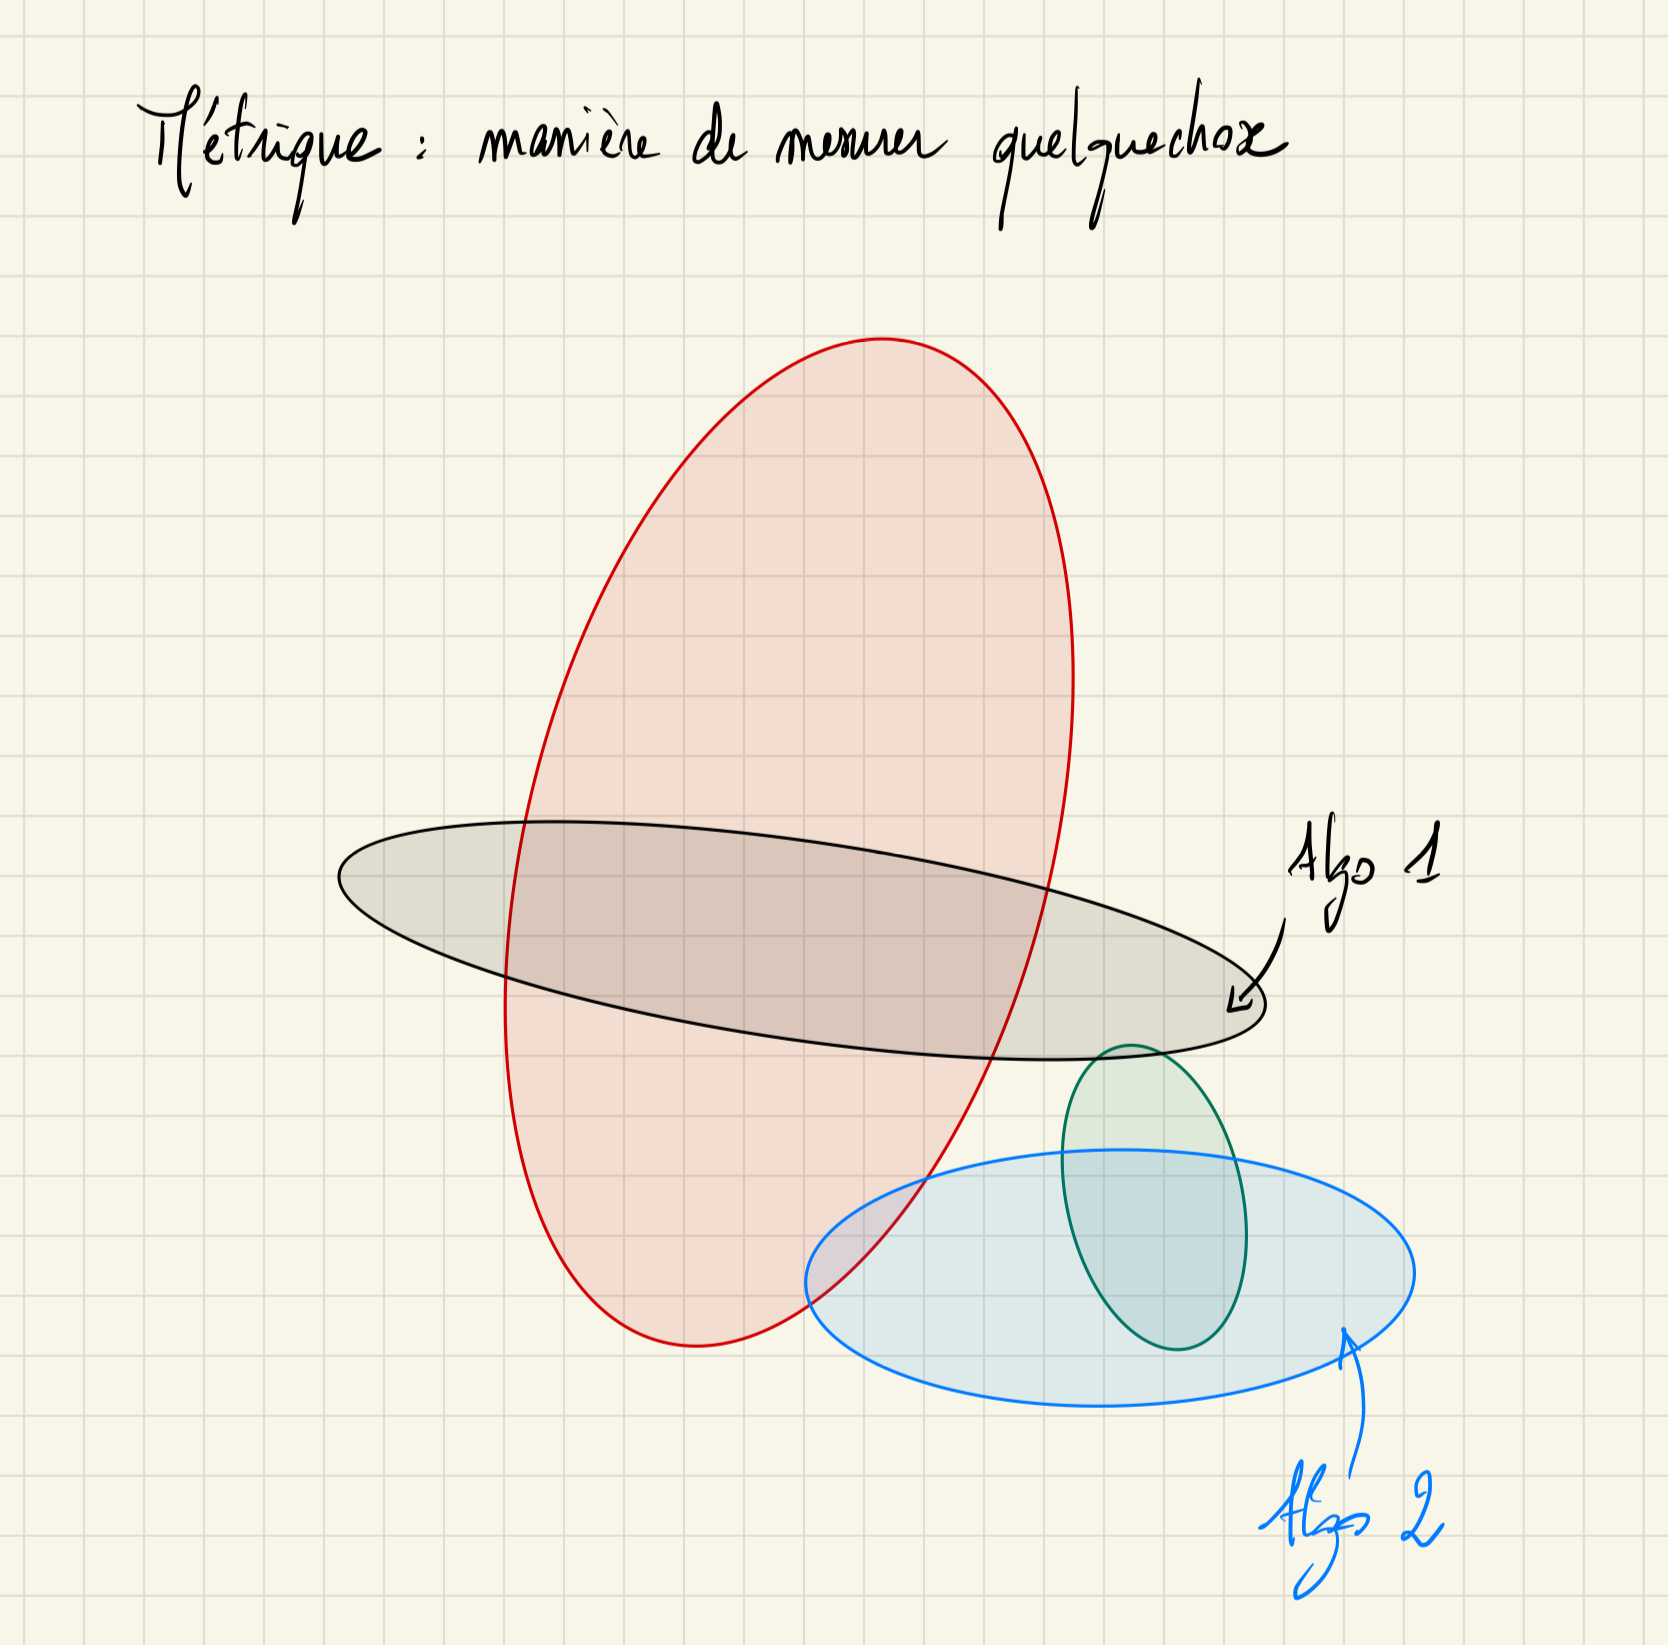 Métrique : manière de mesurer quelquechose
Algo 1
Algo 2